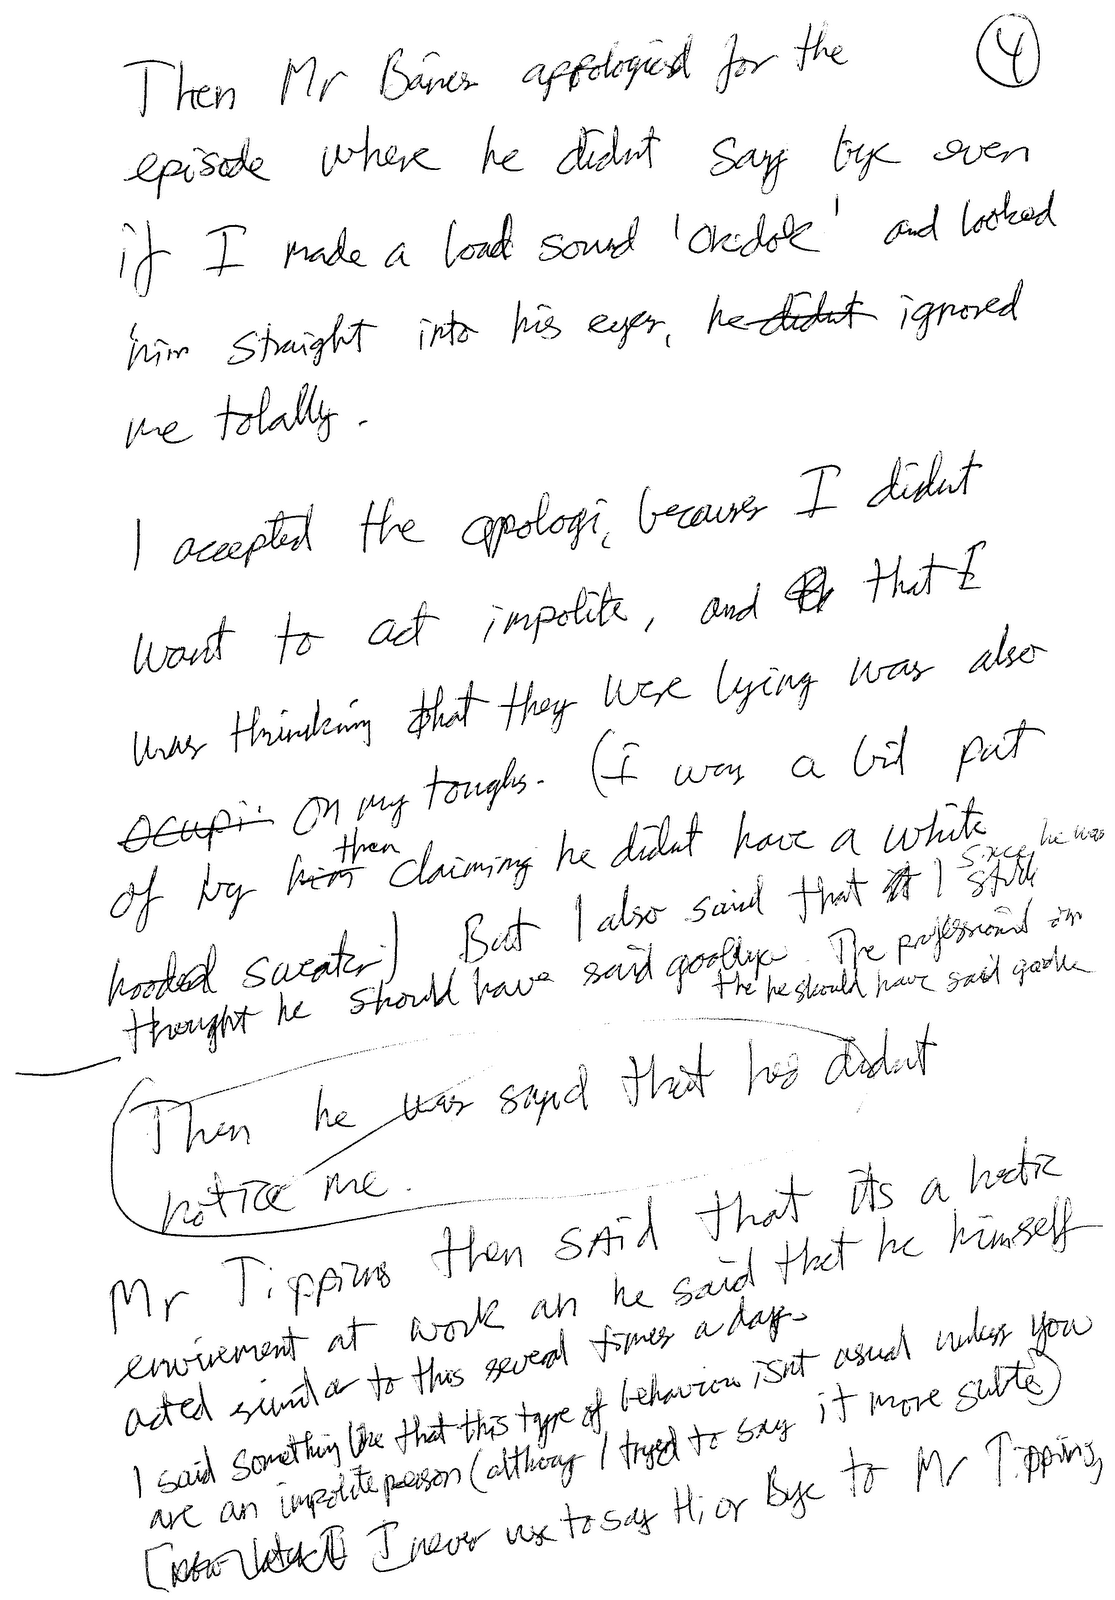 4
Then Mr Banes appologied for the
episode where he didnt say bye even
if I made a load sound 'okdok' and looked
him straight into his eyes, he didnt ignored
me totally.
I accepted the apologi, because I didnt
want to act impolite, and that I
was thinking that they were lying was also
ocupi on my toughs. (I was a bit put
of by him then claiming he didnt have a white
hooded sweater) But I also said that I still
thought he should have said goodbye. The professional
since he was
the he should have said
Then he was sayd that he didnt
notice me.
Mr Tipping then said that its a hectic
envirement at work an he said that he himself
acted similar to this several times a day.
I said something like that this type of behaviour isnt usual unless you
are an impolite person (althoug I tryed to say it more subtle)
[ I never use to say Hi or Bye to Mr Tipping,